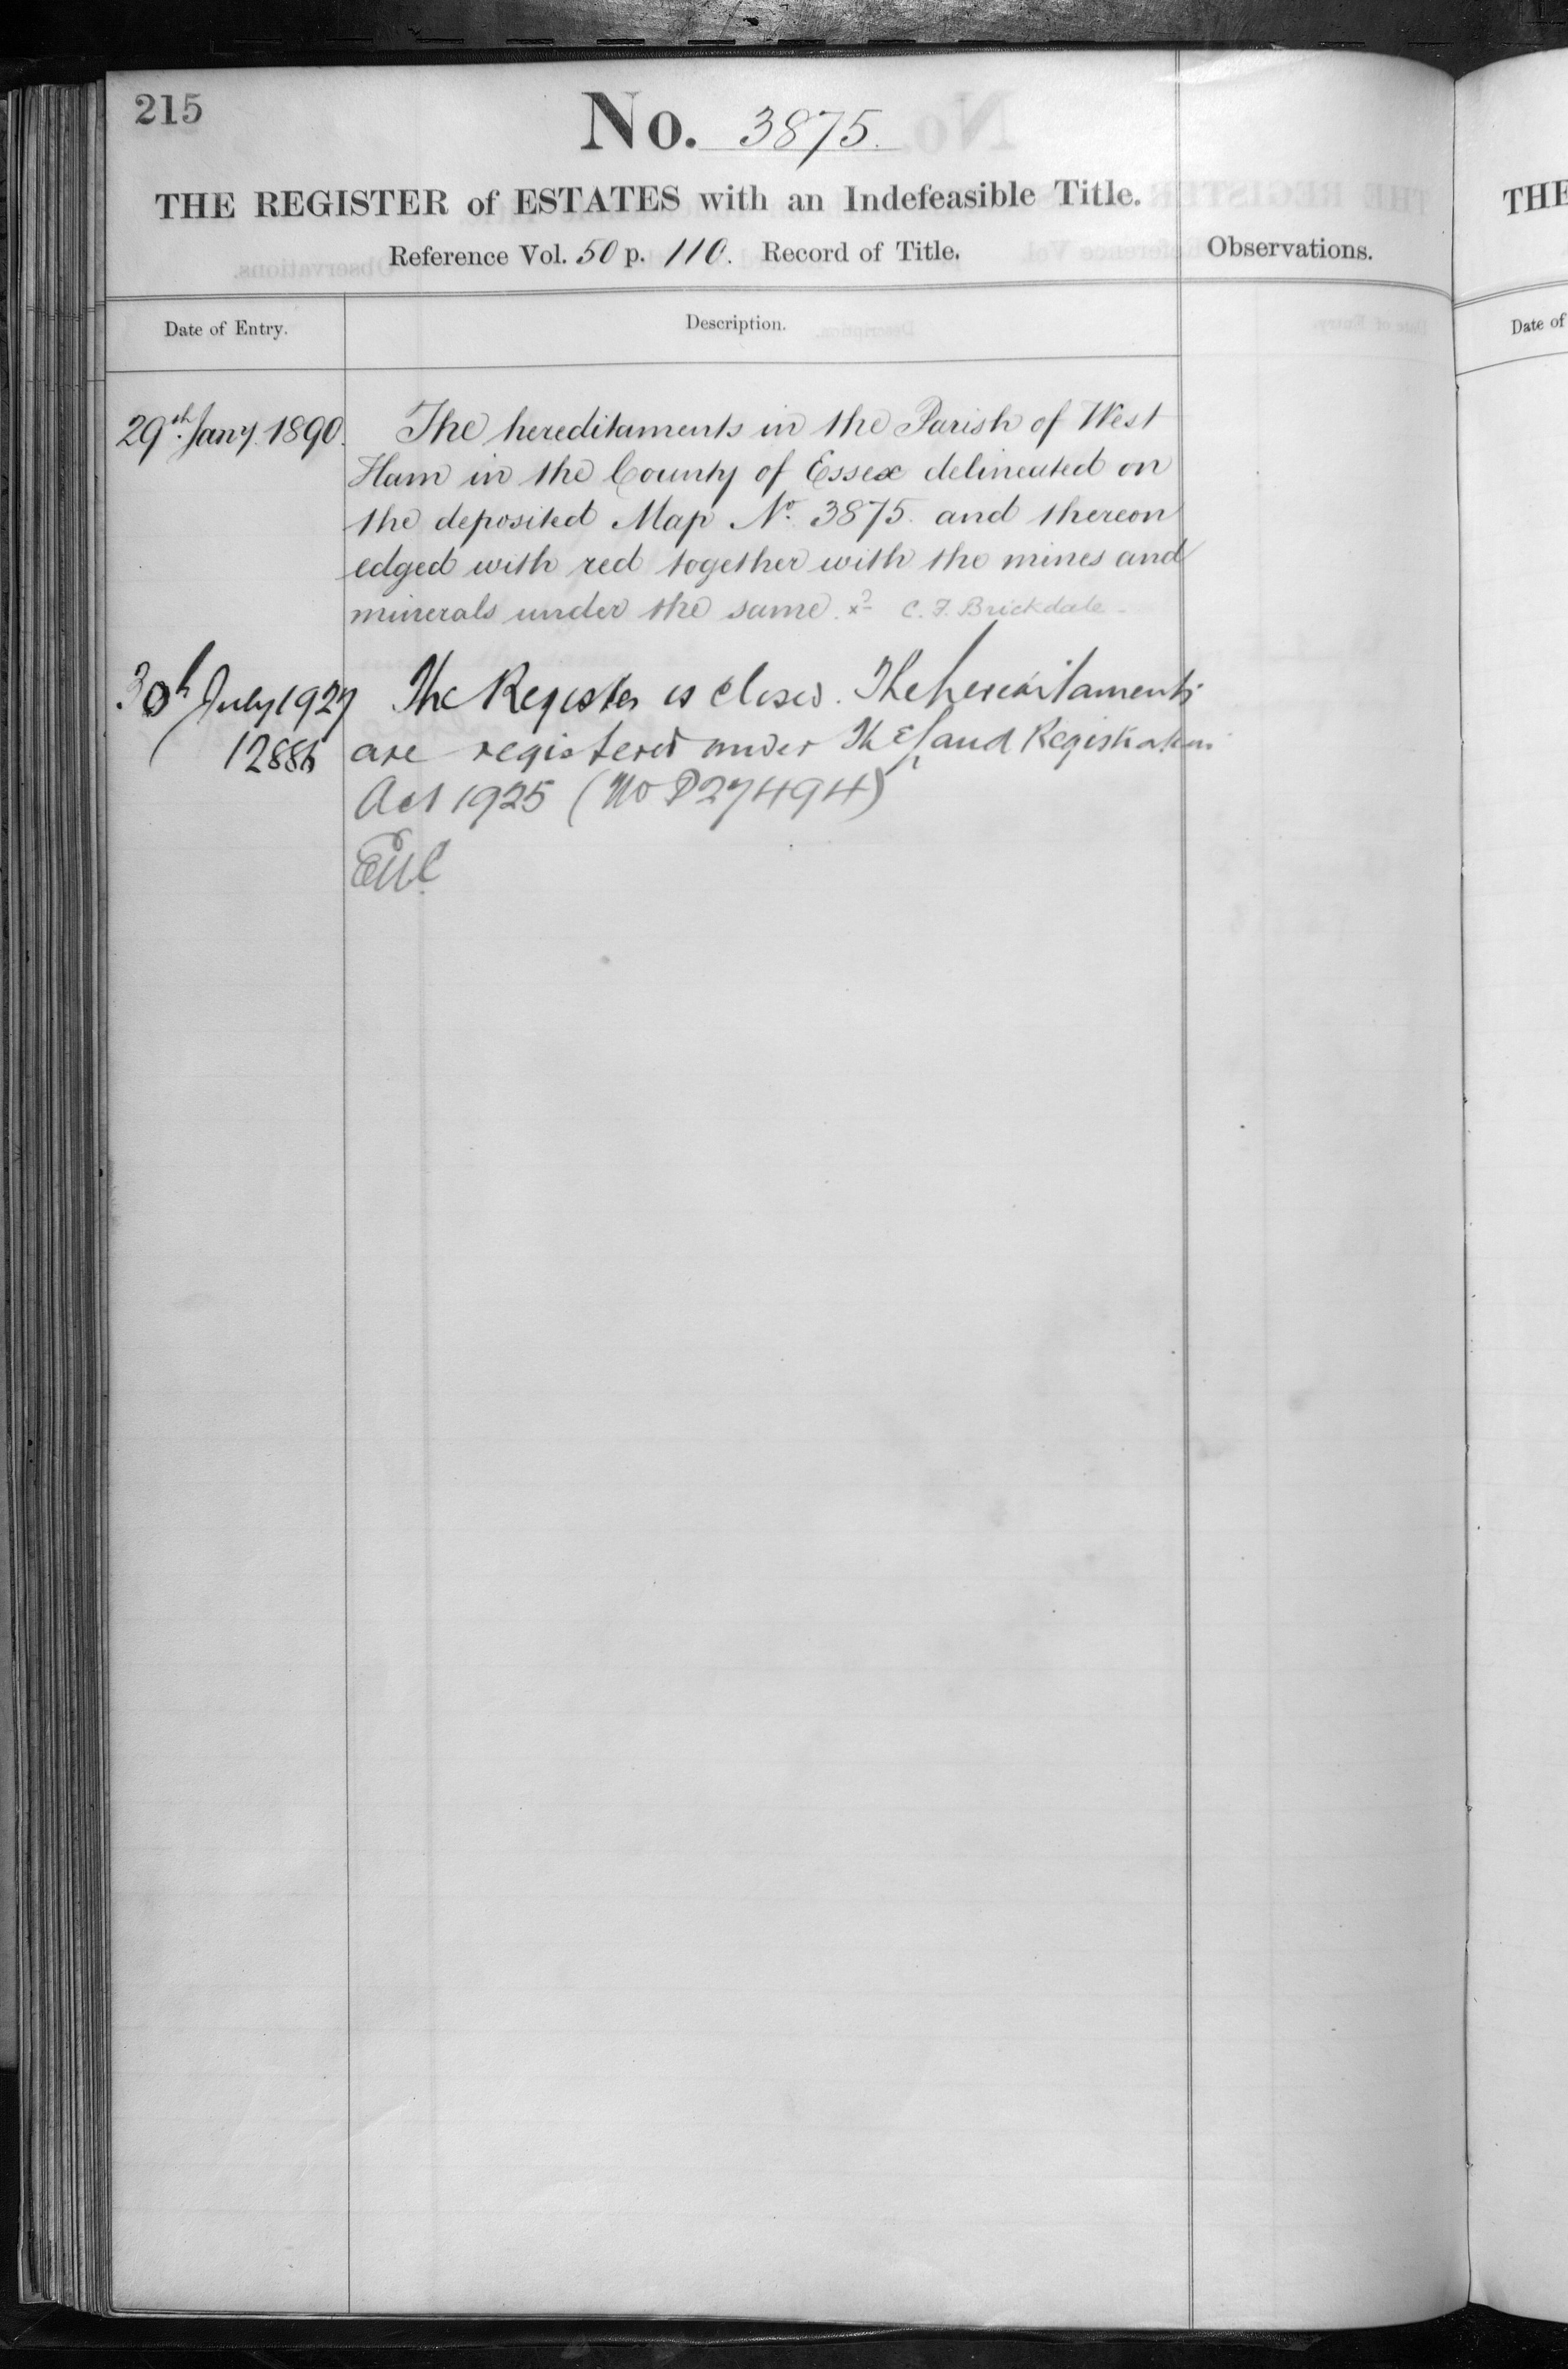 215
No. 3875.
THE REGISTER of ESTATES with an Indefeasible Title.
Reference Vol. 50 p. 110. Record of Title.
Observations.
Date of Entry.
Description.
29th Jany. 1890.
The hereditaments in the Parish of West
Ham in the County of Essex delineated on
the deposited Map No. 3875. and thereon
edged with red together with the mines and
minerals under the same. C. F. Brickdale
30th July 1927
The Register is closed. The hereditaments
are registered under The Land Registration
Act 1925 (No P27494)
THE
Date of